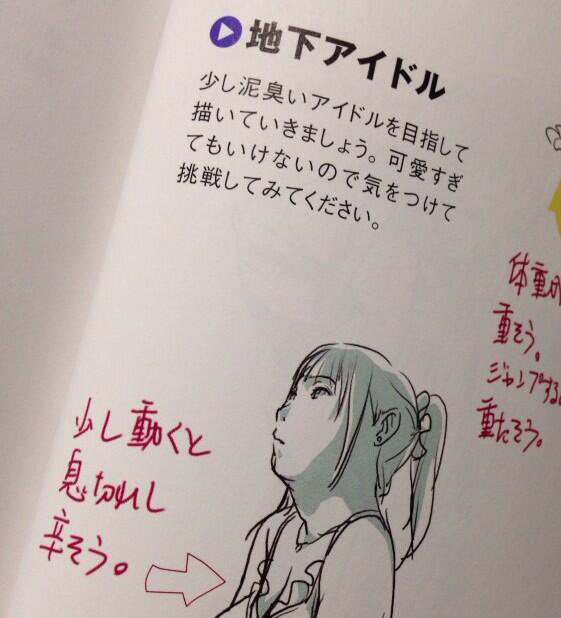 地下アイドル
少し泥臭いアイドルを目指して
描いていきましょう。可愛すぎ
てもいけないので気をつけて
挑戦してみてください。
体重が
重そう。
ジャンプする
重たそう。
少し動くと
息切れし
辛そう。